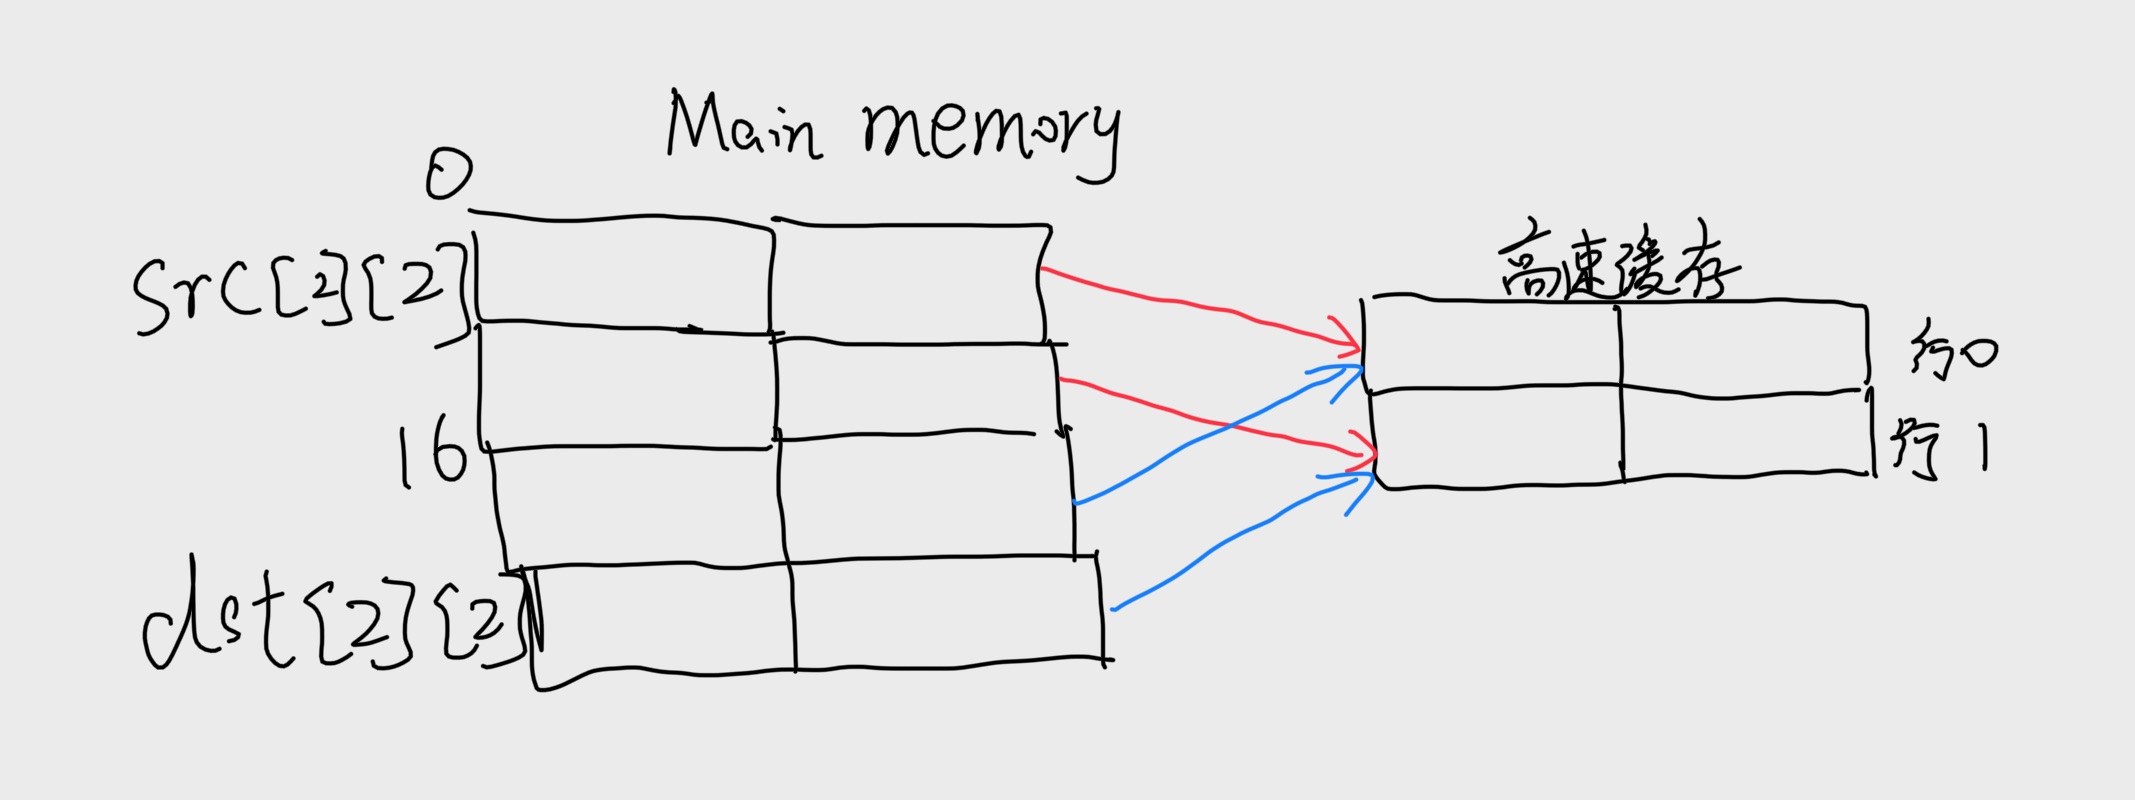 Main memory
0
Src[2][2]
16
dst[2][2]
高速缓存
行0
行1